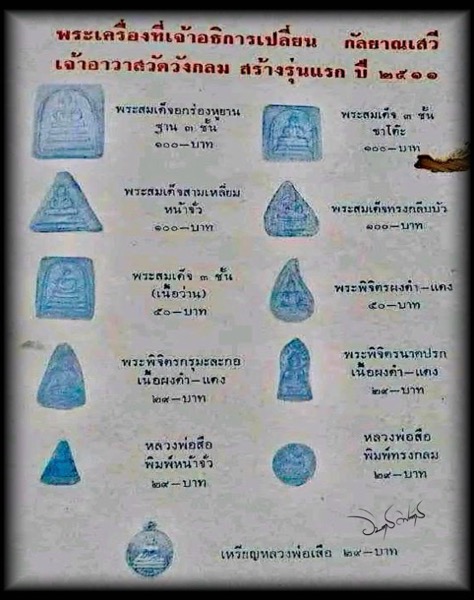 พระเครื่องที่เจ้าอธิการเปลี่ยน กัลยาณเสวี
เจ้าอาวาสวัดวังกลม สร้างรุ่นแรก ปี ๒๕๑๑
พระสมเด็จอกร่องหูยาน
ฐาน ๓ ชั้น
๑๐๐–บาท
พระสมเด็จ ๓ ชั้น
ขาโต๊ะ
๑๐๐–บาท
พระสมเด็จสามเหลี่ยม
หน้าจั่ว
๑๐๐–บาท
พระสมเด็จทรงกลีบบัว
๑๐๐–บาท
พระสมเด็จ ๓ ชั้น
(เนื้อว่าน)
๕๐–บาท
พระพิจิตรผงดำ–แดง
๕๐–บาท
พระพิจิตรกรุมะละกอ
เนื้อผงดำ–แดง
๒๙–บาท
พระพิจิตรนาคปรก
เนื้อผงดำ–แดง
๒๙–บาท
หลวงพ่อสือ
พิมพ์หน้าจั่ว
๒๙–บาท
หลวงพ่อสือ
พิมพ์ทรงกลม
๒๙–บาท
เหรียญหลวงพ่อเสือ ๒๙–บาท